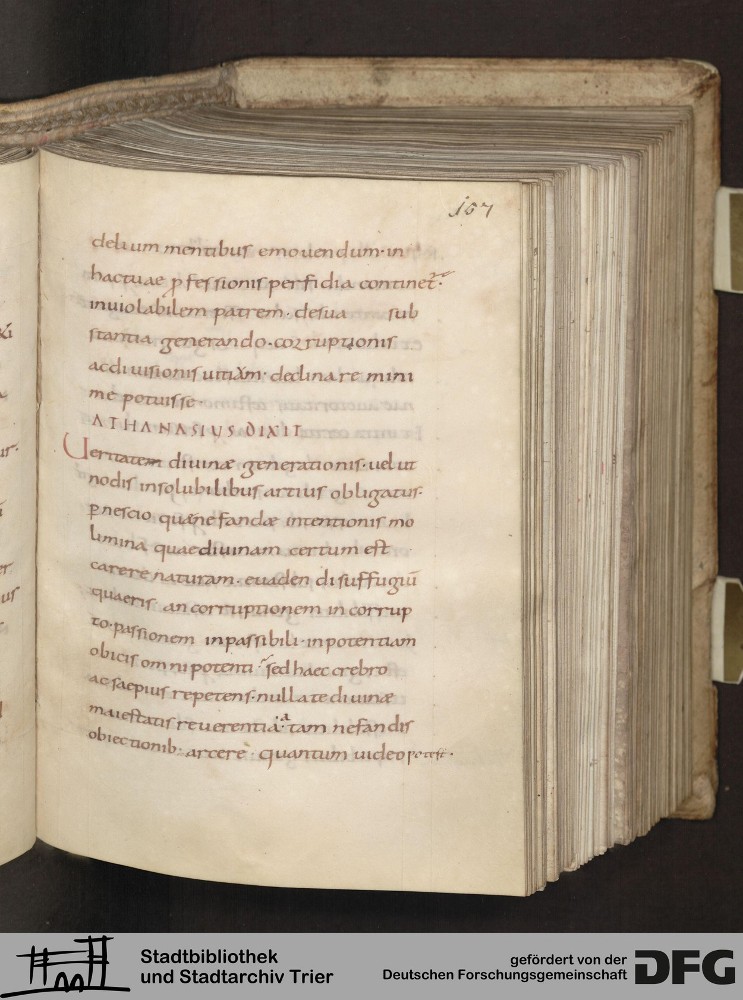 167
delium mentibus emouendum· in
hac tuae ꝓfessionis perfidia continet·
inuiolabilem patrem· de sua sub
stantia generando· corruptionis
ac diuisionis uitiũm· declinare mini
me potuisse·
ATHANASIUS DIXIT
Ueritatem diuinæ generationis· uelut
nodis insolubilibus artius obligatus·
ꝑ nescio quã nefandæ intentionis mo
limina quae diuinam certum est
carere naturam· euadendi suffugiũ
quaeris· an corruptionem in corrup
to· passionem inpassibili· inpotentiam
obicis omnipotenti· sed haec crebro
ac saepius repetens· nulla te diuinæ
maiestatis reuerentia· a tam nefandis
obiectionib· arcere· quantum uideo potest·
Stadtbibliothek
und Stadtarchiv Trier
gefördert von der
Deutschen Forschungsgemeinschaft
DFG